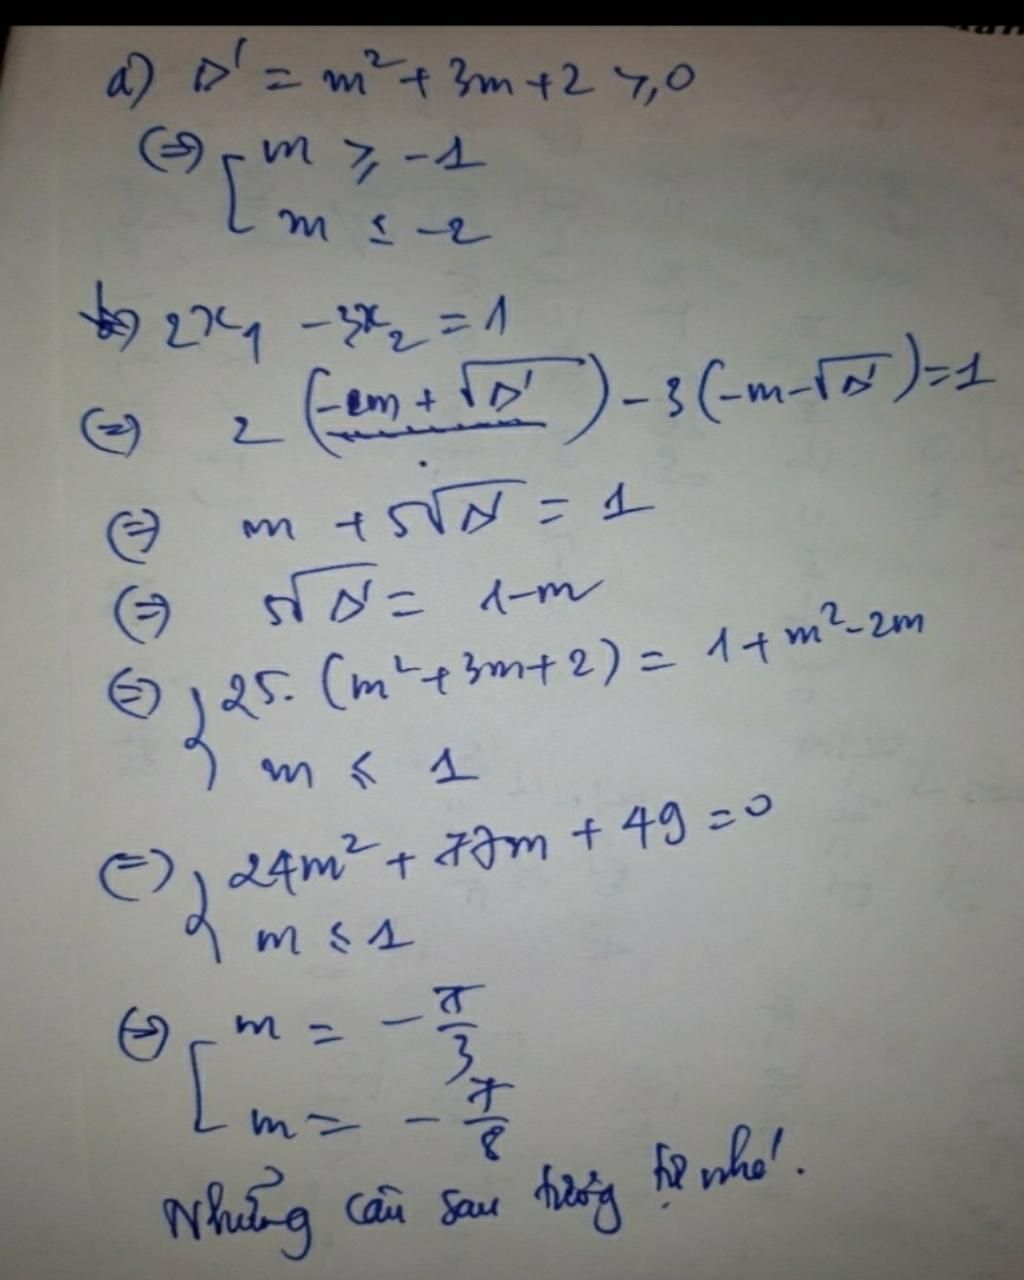 a) Δ' = m² + 3m + 2 ≥ 0
⇔ [ m ≥ -1
m ≤ -2
b) 2x₁ - 3x₂ = 1
⇔ 2 (-m + √Δ') - 3 (-m - √Δ') = 1
⇔ m + 5√Δ' = 1
⇔ 5√Δ' = 1 - m
⇔ { 25. (m² + 3m + 2) = 1 + m² - 2m
m ≤ 1
⇔ { 24m² + 77m + 49 = 0
m ≤ 1
⇔ [ m = - 7/3
m = - 7/8
Những câu sau tương tự nhé!